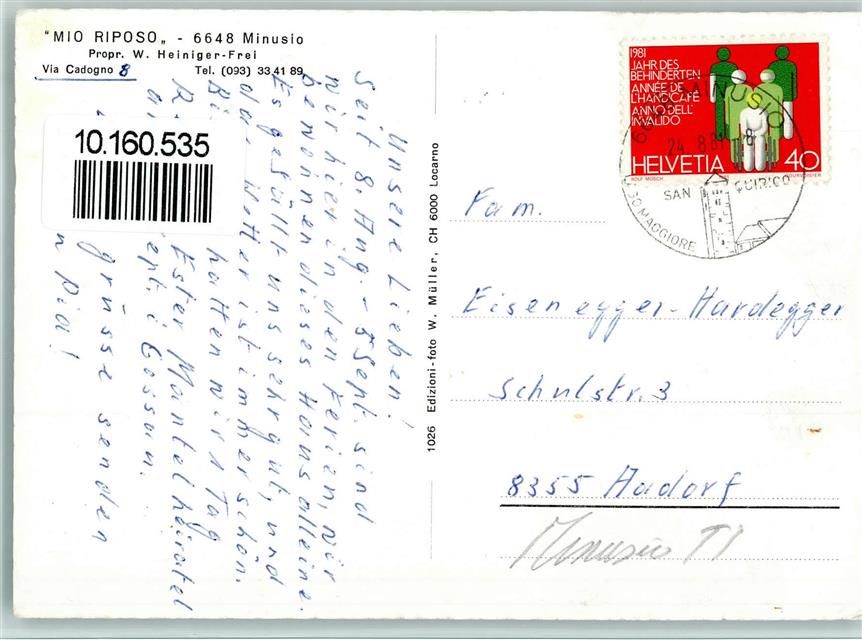 "MIO RIPOSO„ - 6648 Minusio
Propr. W. Heiniger-Frei
Via Cadogno 8 Tel. (093) 33 41 89
10.160.535
Unsere Lieben!
Seit 8. Aug. - 5 Sept. sind
wir hier in den Ferien, wir
bewohnen dieses Haus alleine.
Es gefällt uns sehr gut, und
das Wetter ist immer schön.
hatten wir 1 Tag
Ester Mantel heiratet
Sept. i Gossau.
grüsse senden
1026 Edizioni-foto W. Müller, CH 6000 Locarno
1981
JAHR DES
BEHINDERTEN
ANNÉE DE
L'HANDICAPÉ
ANNO DELL'
INVALIDO
HELVETIA 40
ROLF MOSCH COURVOISIER
6648 MINUSIO
24.8.81-18
SAN QUIRICO
LAGO MAGGIORE
Fam.
Eisenegger-Hardegger
Schulstr. 3
8355 Aadorf
Minusio TI